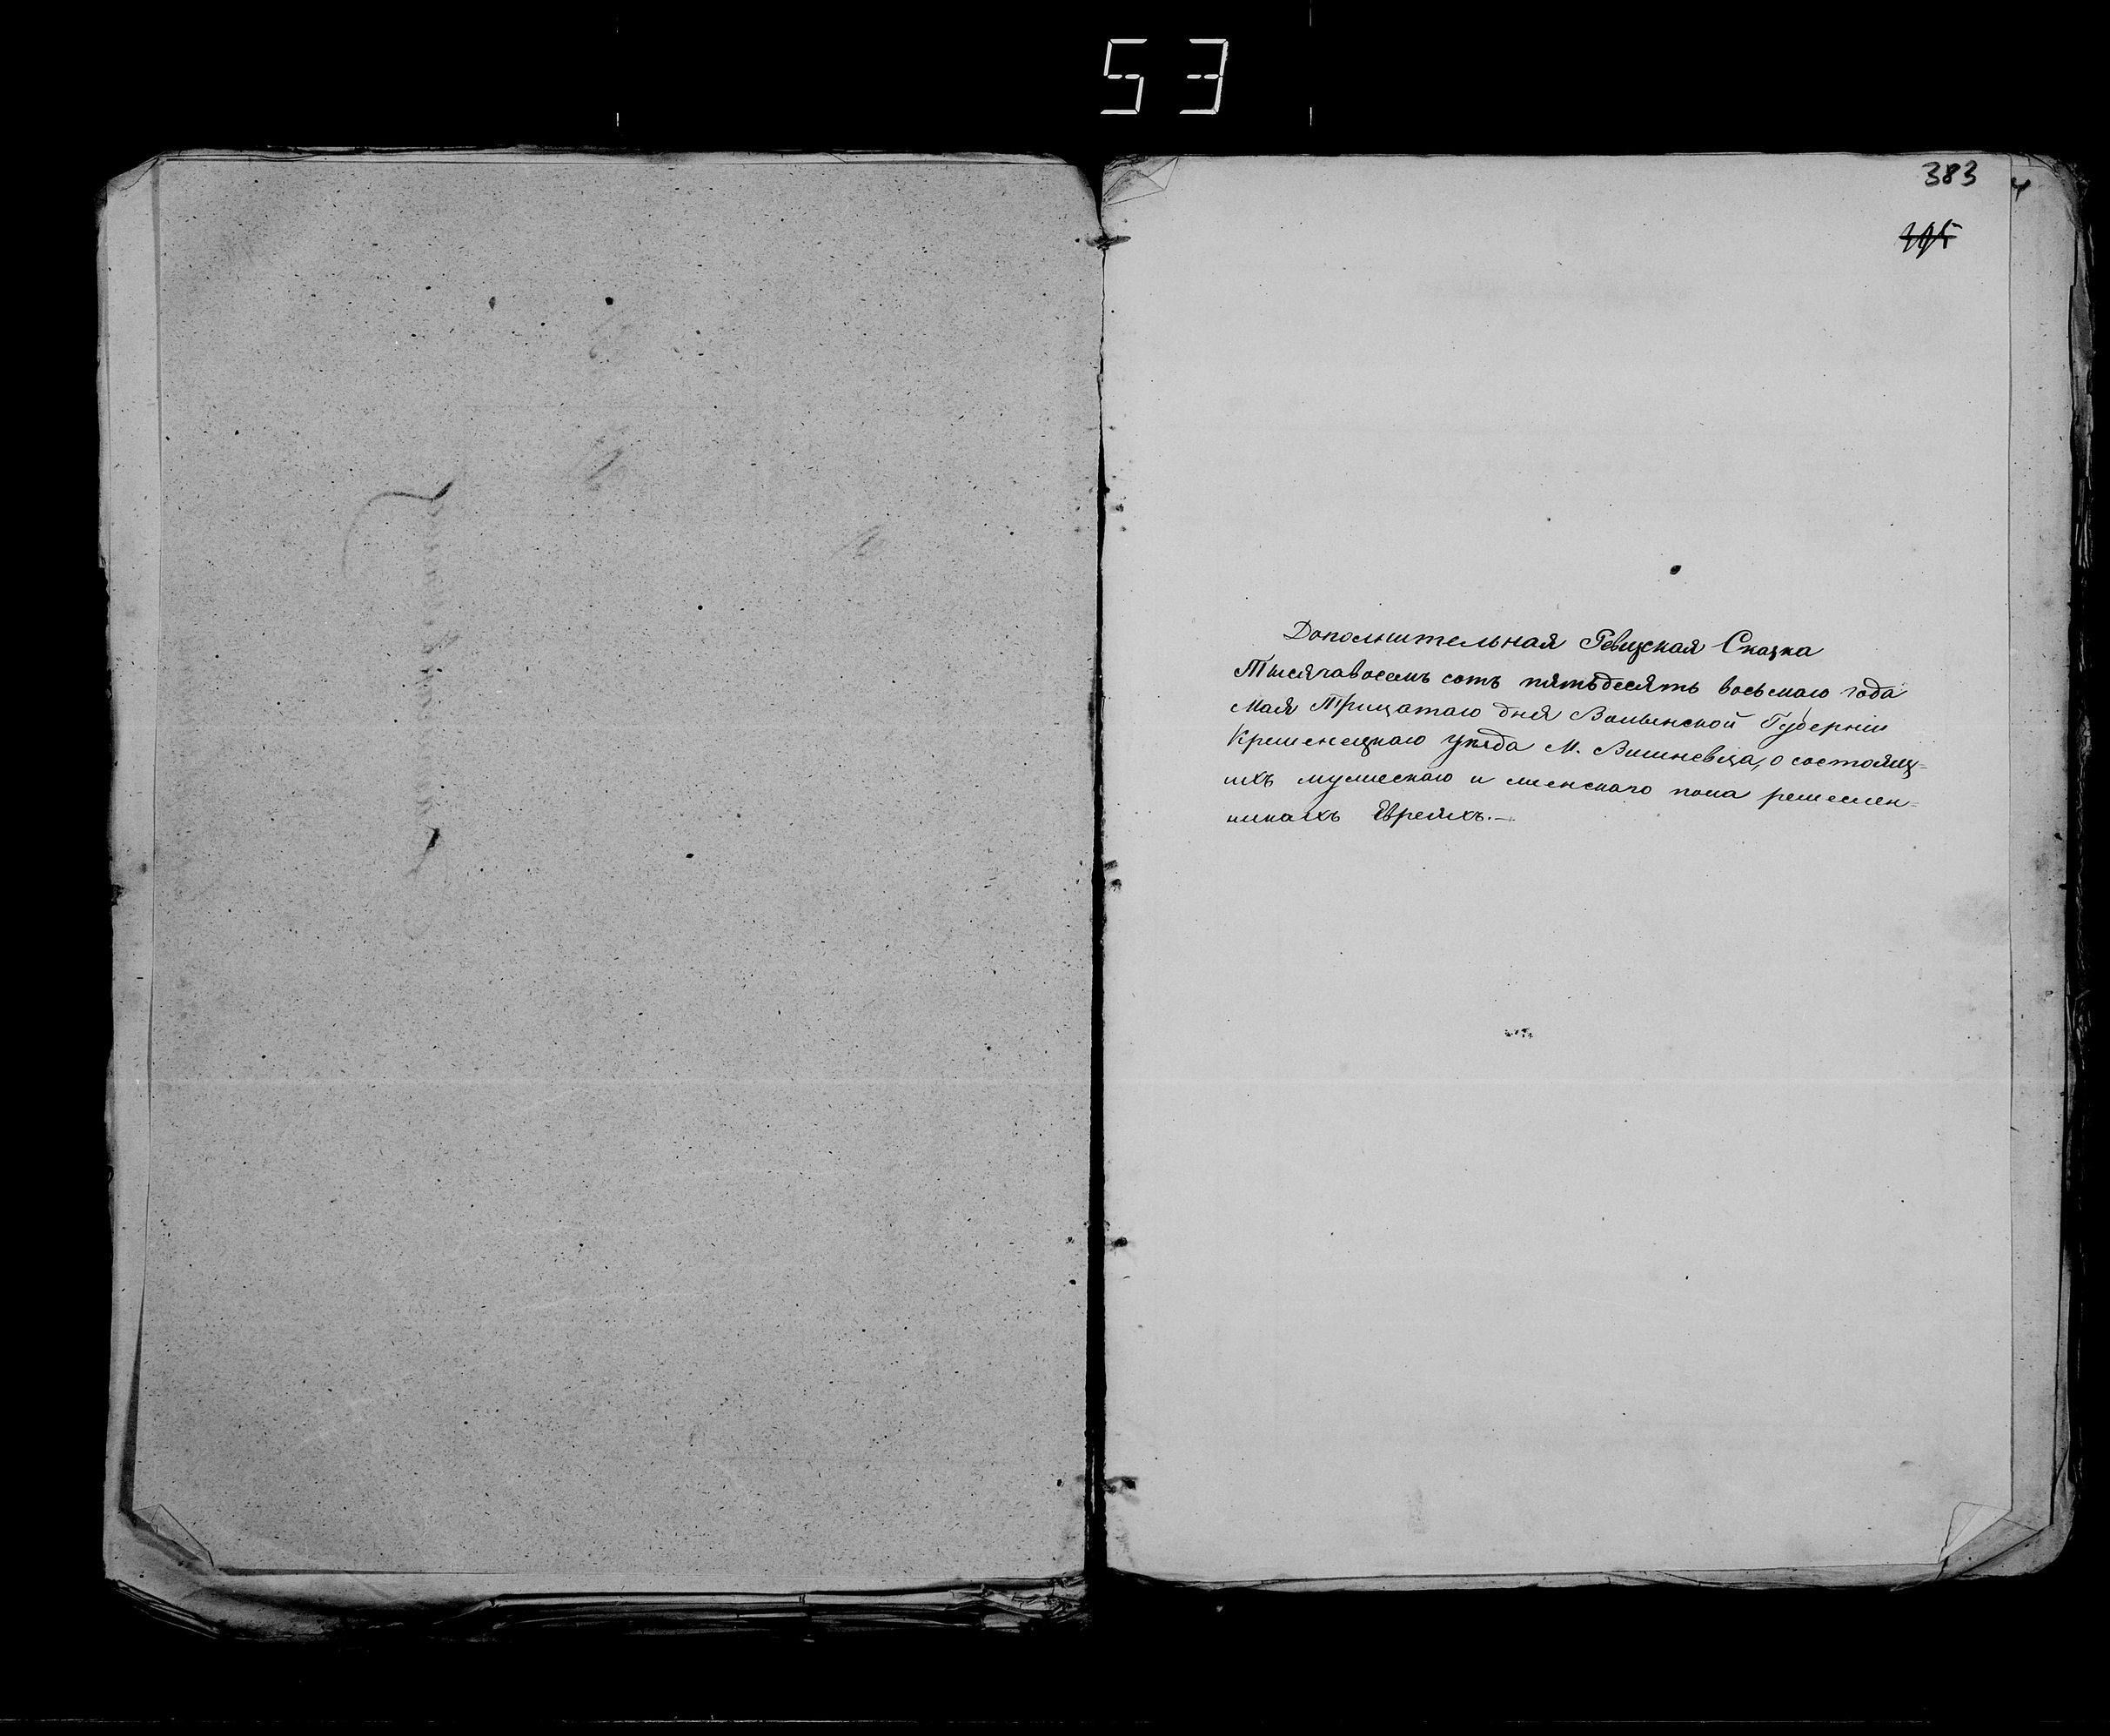 53
383
Дополнительная Ревизская Сказка
Тысячавосемъ сотъ пятьдесятъ восьмаго года
Мая Трицатаго дня Волынской Губерніи
Кременецкаго уезда М. Вишневца, о состоящ=
ихъ мужескаго и женскаго пола ремеслен=
никахъ Евреяхъ.—